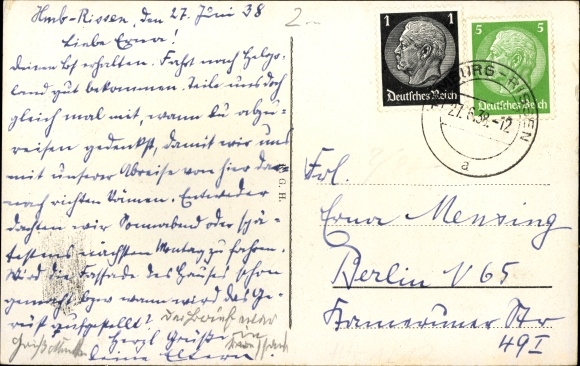 Hmb-Rissen, den 27. Juni 38
Liebe Erna!
deinen Bf erhalten. Fahrt nach Helgo-
land gut bekommen. Teile uns doch
gleich mal mit, wann du abzu-
reisen gedenkst, damit wir uns
mit unserer Abreise von hier da-
nach richten können. Entweder
dachten wir Sonnabend oder spä-
testens nächsten Montag zu fahren.
Wird die Fassade des Hauses schon
gemacht bzw wann wird das Ge-
rüst aufgestellt?
Der Brief war
in
Herzl Grüße
deine Eltern.
2-
G. H.
1 1
Deutsches Reich
5 5
Deutsches Reich
HAMBURG-RISSEN
27.6.38.-12
a
Frl.
Erna Mensing
Berlin N 65
Kameruner Str
49 I